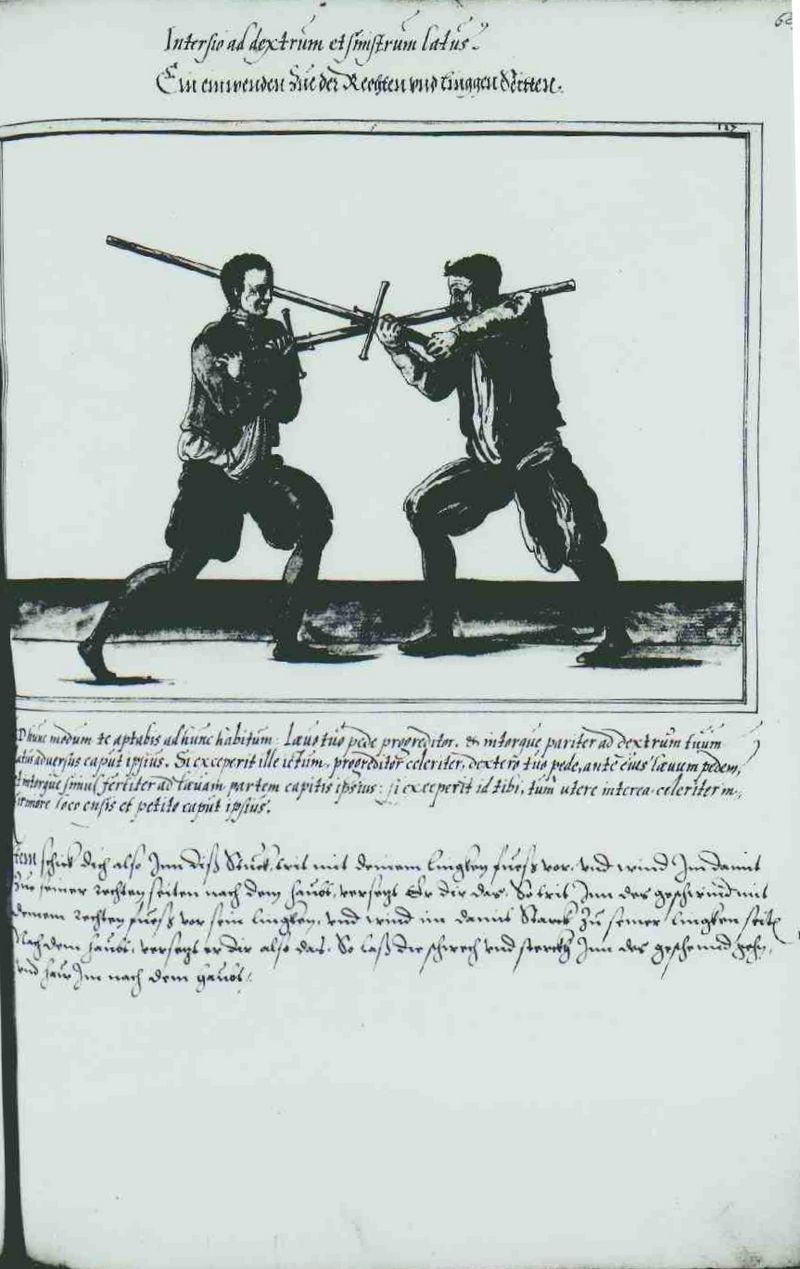 Intersio ad dextrum et sinistrum latus.
Ein einwenden Zue der Rechten und linggen Seitten.
127
hunc modum te aptabis ad hunc habitum: Lævo tuo pede progreditor. & intorque pariter ad dextrum tuum
adversus caput ipsius. Si exceperit ille ictum, progreditor celeriter, dextero tuo pede, ante eius lævum pedem,
intorque simul fortiter ad lævam partem capitis ipsius: si exceperit id tibi, tum utere interea celeriter
loco ensis et petito caput ipsius.
schick dich also Inn diß Stuck trit mit deinem lingken fuess vor. und wind Im damit
Zue seiner rechten seiten nach dem haubt, versezt Er dir das. So trit Inn des geschwind mit
deinem Rechten fuess vor sein lingken, und wind im damit Starck Zu seiner lingken seite
Nach dem haubt, versezt er dir also das. So laß die schnech und sterck Inn des geschwind gehn,
und haw Im nach dem haubt.